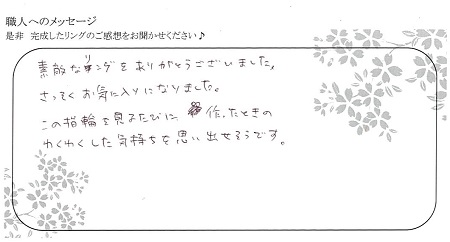 職人へのメッセージ
是非 完成したリングのご感想をお聞かせください♪
素敵なリングをありがとうございました。
さってくお気に入りになりました。
この指輪を見るたびに 作ったときの
わくわくした気持ちを思い出せそうです。